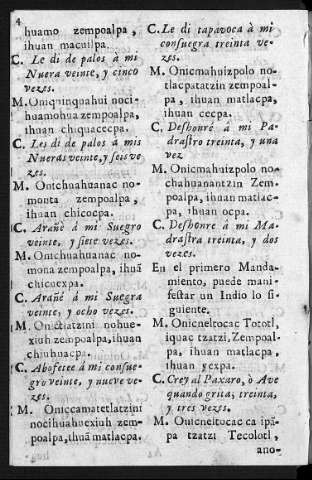 4
huamo zempoalpa,
ihuan macuilpa.
C. Le di de palos à mi
Nuera veinte, y cinco
vezes.
M. Oniquinquahui noci-
huamohua zempoalpa,
ihuan chiquacecpa.
C. Les di de palos à mis
Nueras veinte, y seis ve-
zes.
M. Onichuahuanac no-
monta zempoalpa,
ihuan chicocpa.
C. Arañè à mi Suegro
veinte, y siete vezes.
M. Onichuahuanac no-
mona zempoalpa, ihuã
chicuexpa.
C. Arañè á mi Suegra
veinte, y ocho vezes.
M. nohue-
xiuh zempoalpa, ihuan
chiuhnacpa.
C. Abofetee à mi consue-
gro veinte, y nueve ve-
zes.
M. Oniccamatetlatzini
nocihuahuexiuh zem-
poalpa, ihuã matlacpa.
C. Le di tapavoca à mi
consuegra treinta ve-
zes.
M. Onicmahuizpolo no-
tlacpatatzin zempoal-
pa, ihuan matlacpa,
ihuan cecpa.
C. Deshonrè à mi Pa-
drastro treinta, y una
vez
M. Onicmahuizpolo no-
chahuanantzin Zem-
poalpa, ihuan matlac-
pa, ihuan ocpa.
C. Deshonre à mi Ma-
drastra treinta, y dos
vezes.
En el primero Manda-
miento, puede mani-
festar un Indio lo si-
guiente.
M. Onicneltocac Tototl,
iquac tzatzi, Zempoal-
pa, ihuan matlacpa,
ihuan yexpa.
C. Crey al Paxaro, ò Ave
quando grita, treinta,
y tres vezes.
M. Onicneltocac ca ipã-
pa tzatzi Tecolotl,
ano-